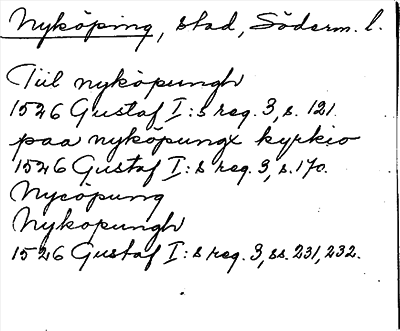 Nyköping, stad, Söderm. l.
Till nyköpungh
1526 Gustaf I:s reg. 3, s. 121.
paa nyköpungx kyrkio
1526 Gustaf I:s reg. 3, s. 170.
Nycöpung
Nykopungh
1526 Gustaf I:s reg. 3, ss. 231, 232.